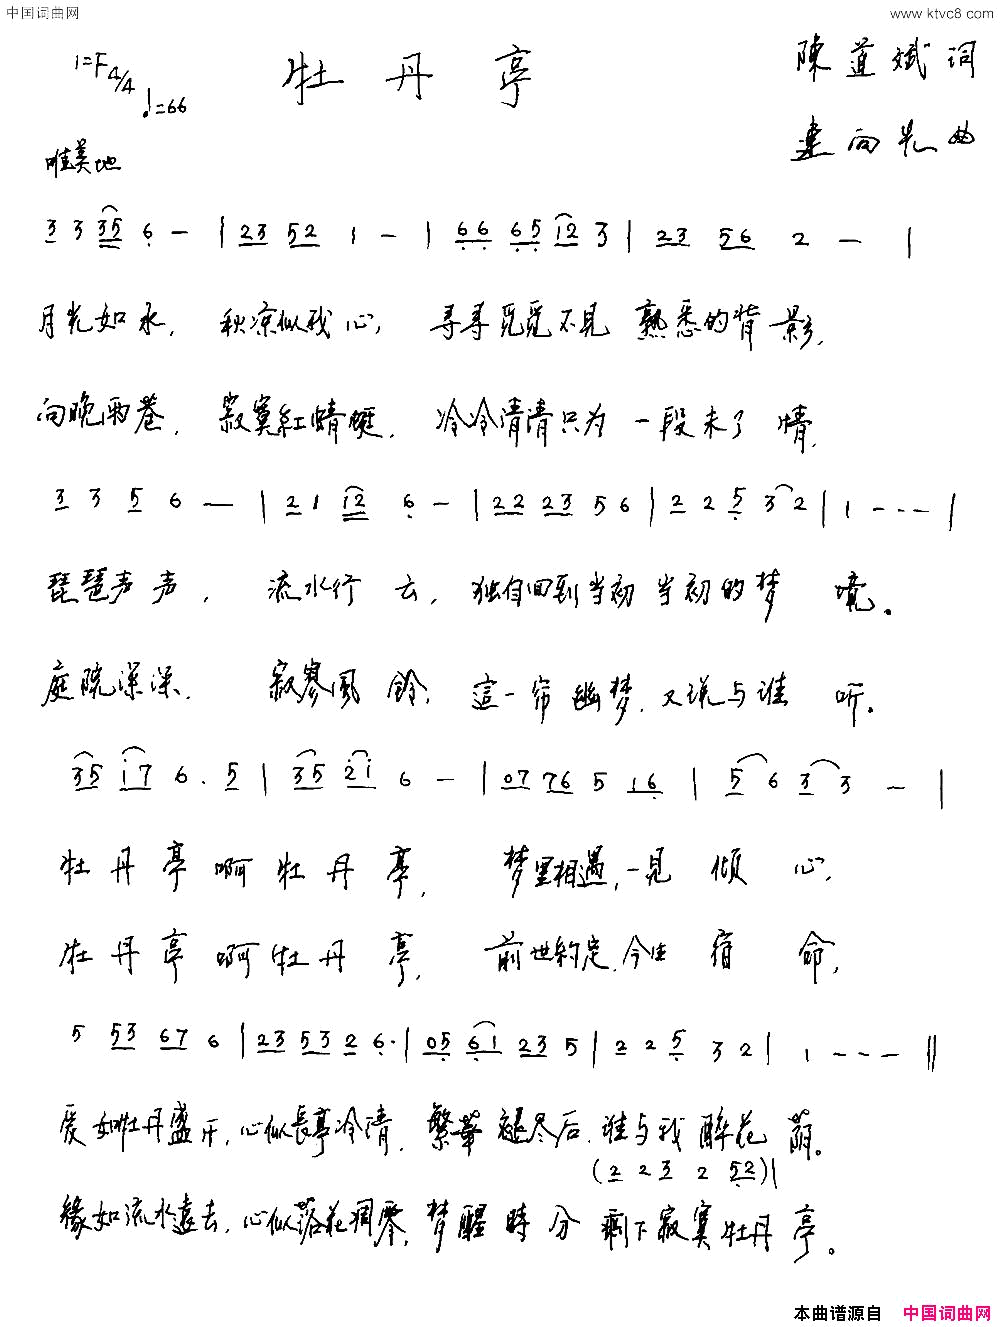 中国词曲网 www.ktvc8.com
1=F 4/4 ♩=66
牡丹亭
陳道斌 词
建向光 曲
唯美地
3 3 35 6 - | 23 52 1 - | 66 65 12 3 | 23 56 2 - |
月光如水, 秋凉似我心, 寻寻觅觅不见 熟悉的背影,
向晚雨巷, 寂寞红蜻蜓, 冷冷清清只为 一段未了情,
3 3 5 6 - | 2 1 12 6 - | 22 23 5 6 | 2 2 5 3 2 | 1 - - - |
琵琶声声, 流水行云, 独自回到当初 当初的梦境。
庭院深深, 寂寥風铃, 這一帘幽梦, 又说与谁听。
35 17 6 . 5 | 35 21 6 - | 07 76 5 16 | 5 6 3 3 - |
牡丹亭啊牡丹亭, 梦里相遇, 一见倾心,
牡丹亭啊牡丹亭, 前世约定, 今生宿命,
5 53 67 6 | 23 53 2 6· | 05 61 23 5 | 2 2 5 3 2 | 1 - - - ||
爱如牡丹盛开, 心似長亭冷清, 繁華褪尽后, 谁与我醉花荫。
(2 2 3 2 52) |
緣如流水遠去, 心似落花凋零, 梦醒時分 剩下寂寞牡丹亭。
本曲谱源自 中国词曲网